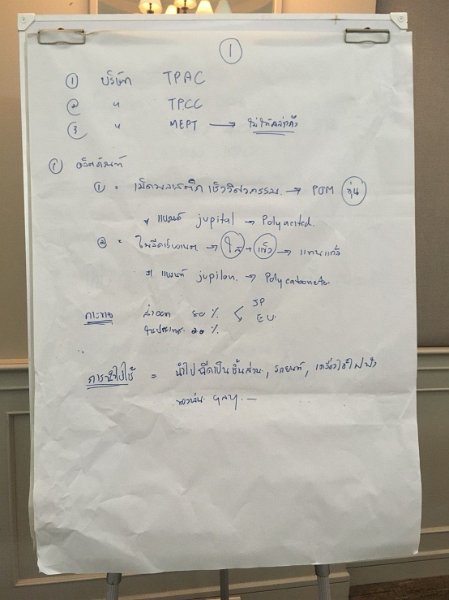 1
① บริษัท TPAC
② " TPCC
③ " MEPT → ไม่ให้กล่าวถึง
② ผลิตภัณฑ์
① = เม็ดพลาสติก เชิงวิศวกรรม → POM ขุ่น
* แบรนด์ jupital → Polyacital
② " โพลีคาร์บอเนต → ใส + แข็ง → แทนแก้ว
* แบรนด์ jupilon → Polycarbonate
ตลาด ส่งออก 80 % < JP
EU
ในประเทศ 20 %
การนำไปใช้ = นำไปฉีดเป็นชิ้นส่วน, รถยนต์, เครื่องใช้ไฟฟ้า